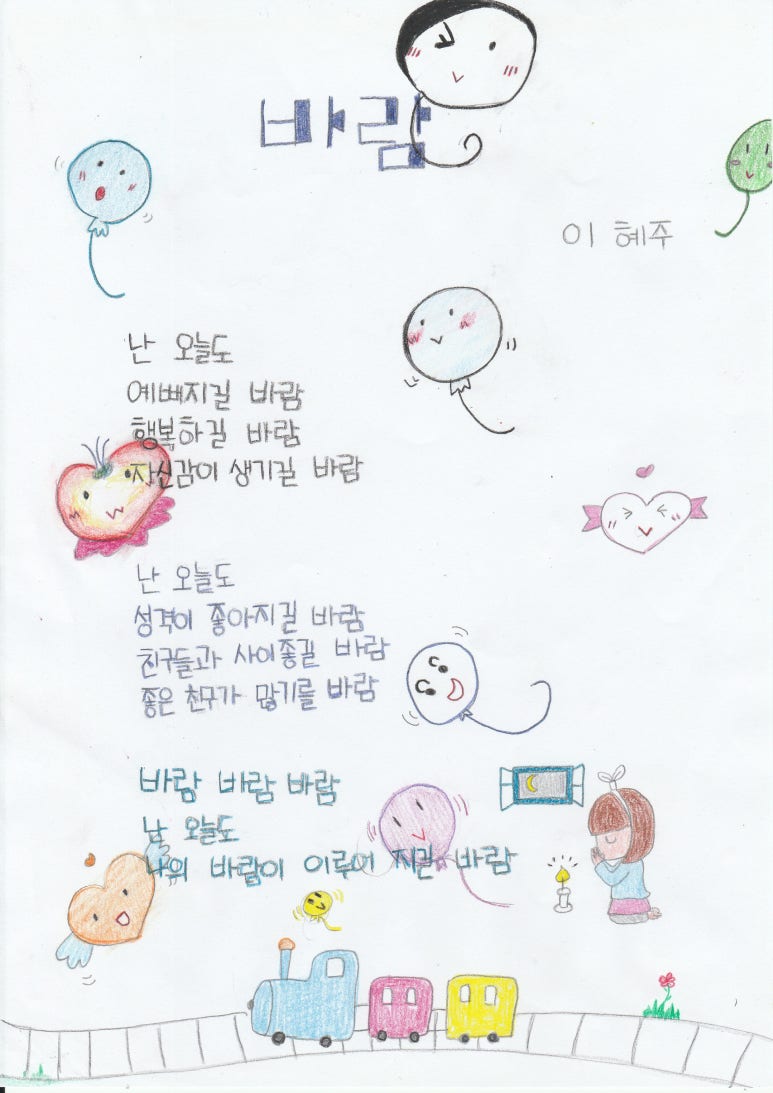 바람
이 혜주
난 오늘도
예뻐지길 바람
행복하길 바람
자신감이 생기길 바람
난 오늘도
성격이 좋아지길 바람
친구들과 사이좋길 바람
좋은 친구가 많기를 바람
바람 바람 바람
난 오늘도
나의 바람이 이루어 지길 바람